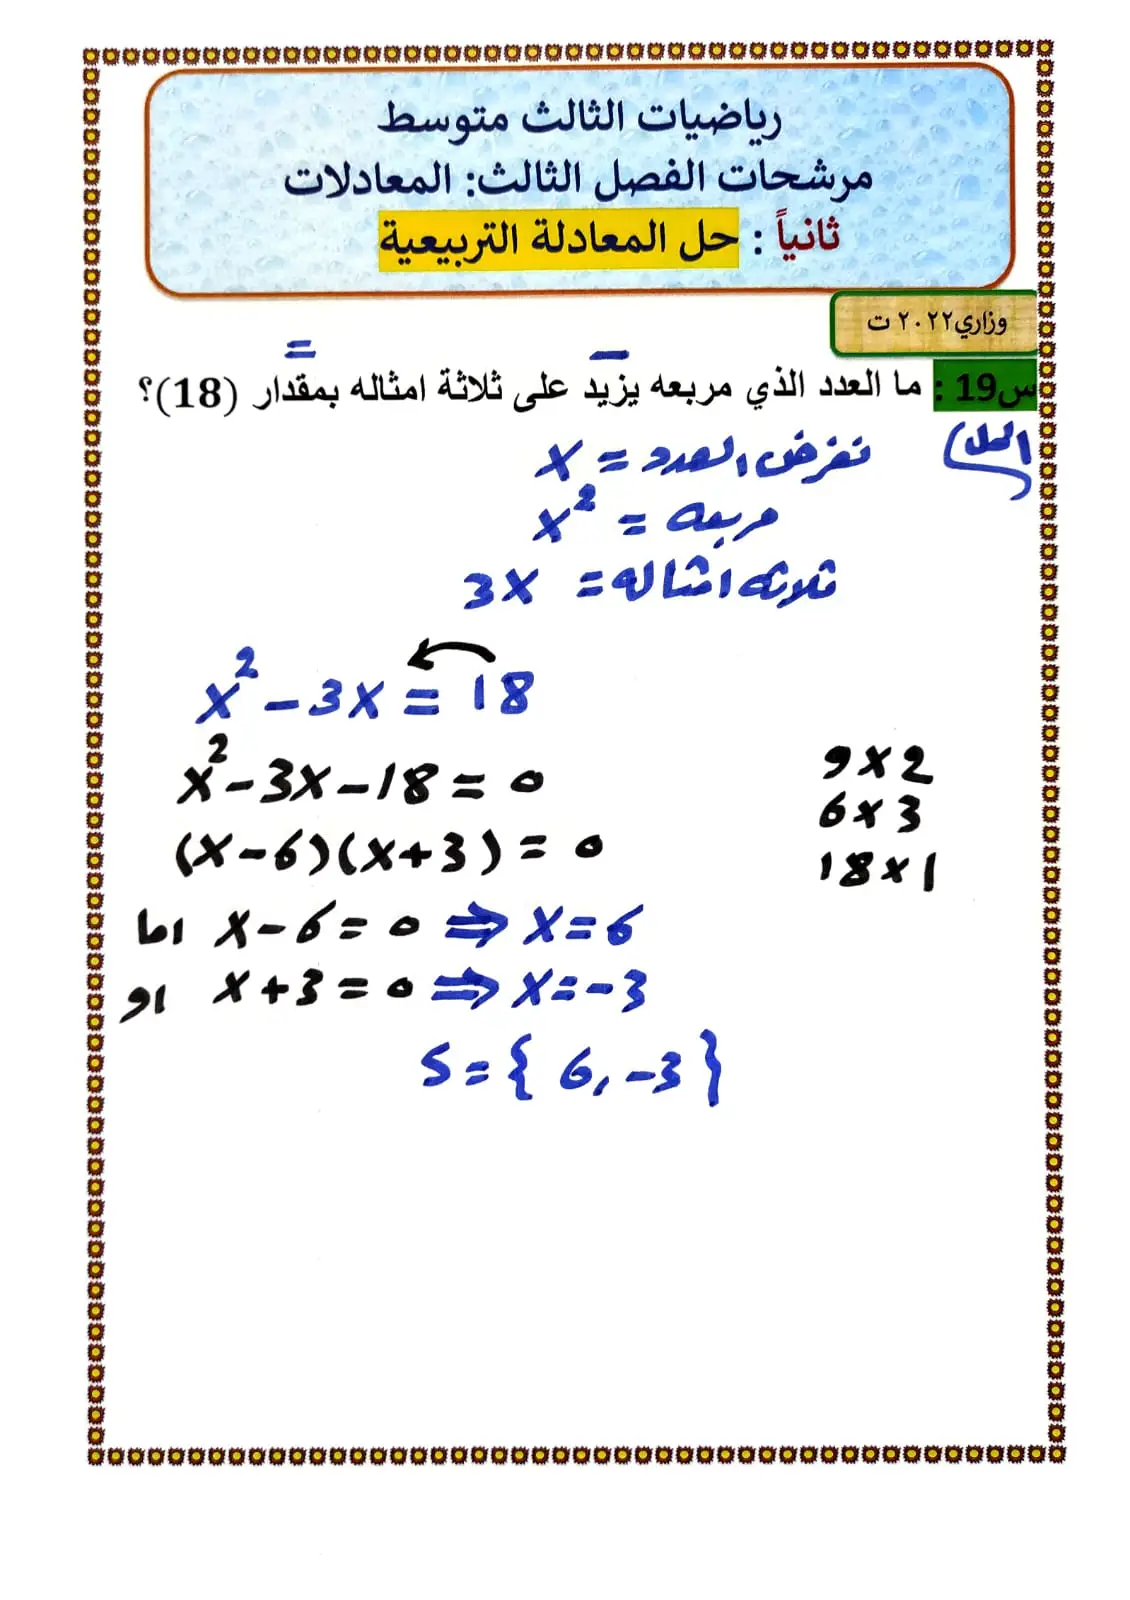 رياضيات الثالث متوسط
مرشحات الفصل الثالث: المعادلات
ثانياً : حل المعادلة التربيعية
وزاري٢٠٢٢ ت
س19 : ما العدد الذي مربعه يزيد على ثلاثة امثاله بمقدار (18)؟
الحل
نفرض العدد = x
مربعه = x²
ثلاثة امثاله = 3x
x² - 3x = 18
x² - 3x - 18 = 0
9 × 2
(x - 6)(x + 3) = 0
6 × 3
18 × 1
اما x - 6 = 0 ⇒ x = 6
او x + 3 = 0 ⇒ x = -3
S = { 6, -3 }